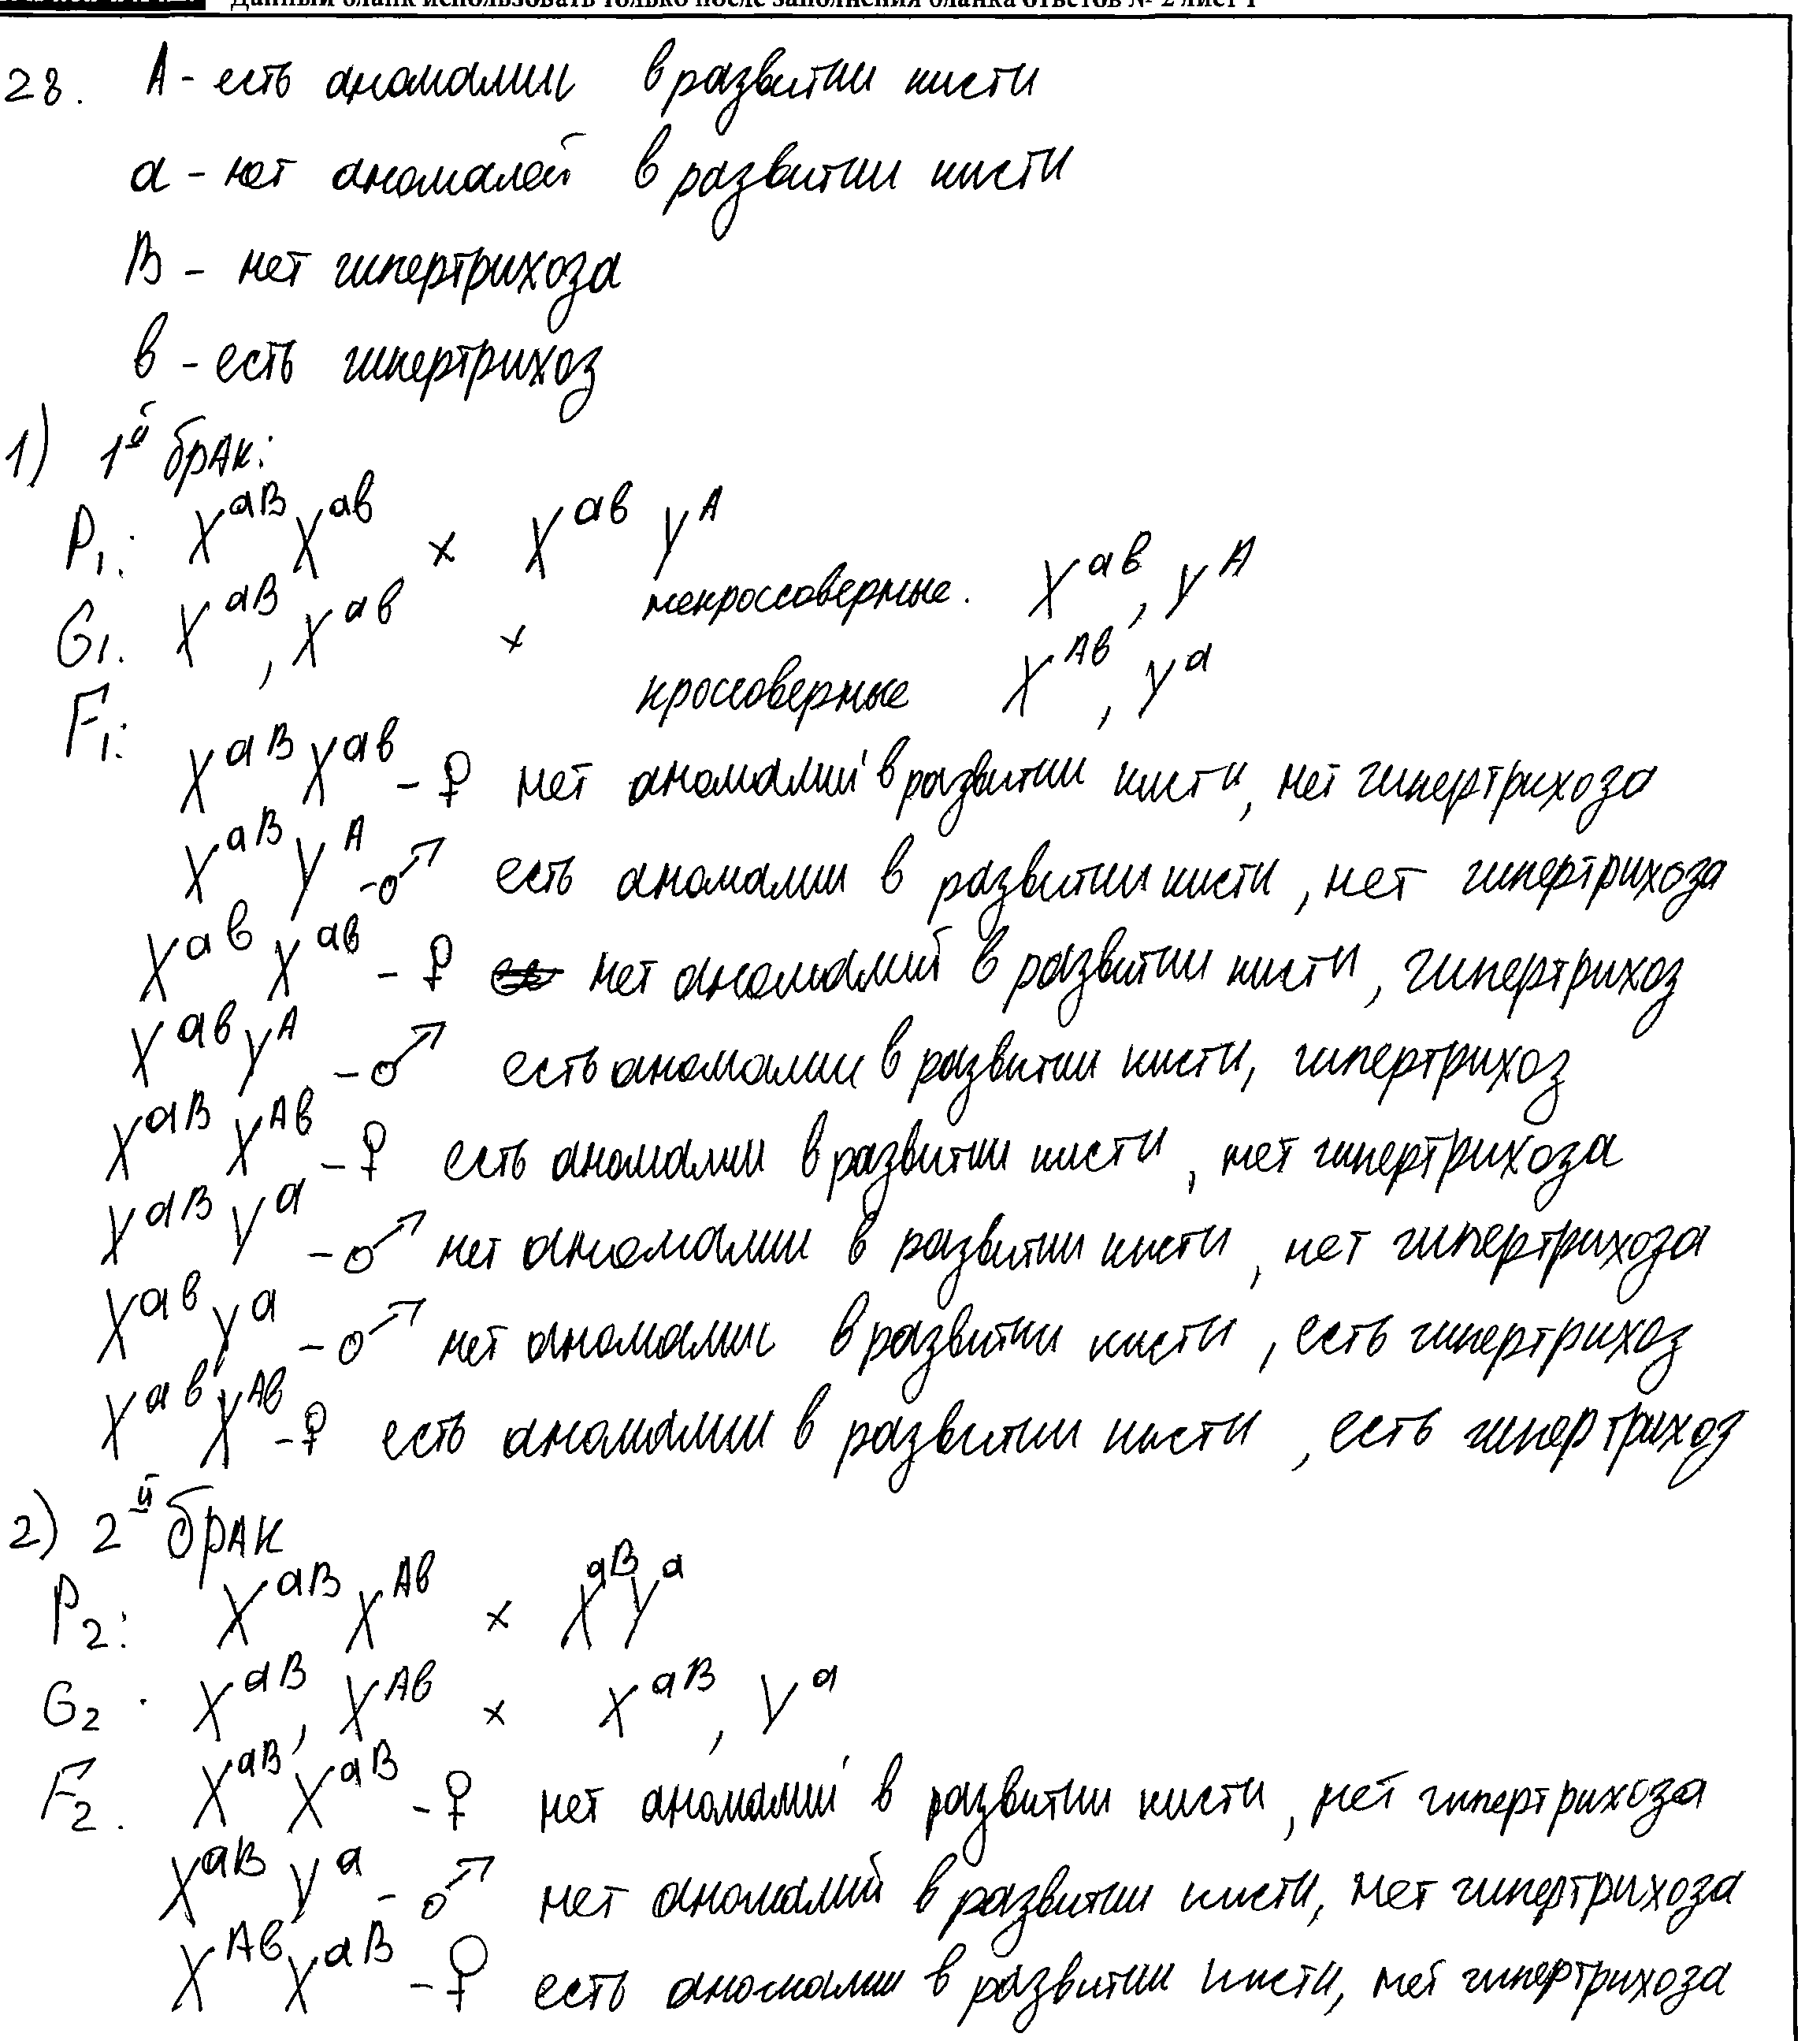 Данный бланк использовать только после заполнения бланка ответов № 2 лист 1
28. А - есть аномалии в развитии кисти
а - нет аномалей в развитии кисти
В - нет гипертрихоза
в - есть гипертрихоз
1) 1й брак:
P₁: XᵃᴮXᵃᵇ × XᵃᵇYᴬ
G₁. Xᵃᴮ, Xᵃᵇ × некроссоверные. Xᵃᵇ, Yᴬ
кроссоверные Xᴬᵇ, Yᵃ
F₁:
XᵃᴮXᵃᵇ - ♀ нет аномалий в развитии кисти, нет гипертрихоза
XᵃᴮYᴬ - ♂ есть аномалии в развитии кисти, нет гипертрихоза
XᵃᵇXᵃᵇ - ♀ нет аномалий в развитии кисти, гипертрихоз
XᵃᵇYᴬ - ♂ есть аномалии в развитии кисти, гипертрихоз
XᵃᴮXᴬᵇ - ♀ есть аномалии в развитии кисти, нет гипертрихоза
XᵃᴮYᵃ - ♂ нет аномалии в развитии кисти, нет гипертрихоза
XᵃᵇYᵃ - ♂ нет аномалии в развитии кисти, есть гипертрихоз
XᵃᵇXᴬᵇ - ♀ есть аномалии в развитии кисти, есть гипертрихоз
2) 2й брак
P₂: XᵃᴮXᴬᵇ × XᵃᴮYᵃ
G₂. Xᵃᴮ, Xᴬᵇ × Xᵃᴮ, Yᵃ
F₂. XᵃᴮXᵃᴮ - ♀ нет аномалий в развитии кисти, нет гипертрихоза
XᵃᴮYᵃ - ♂ нет аномалий в развитии кисти, нет гипертрихоза
XᴬᵇXᵃᴮ - ♀ есть аномалии в развитии кисти, нет гипертрихоза